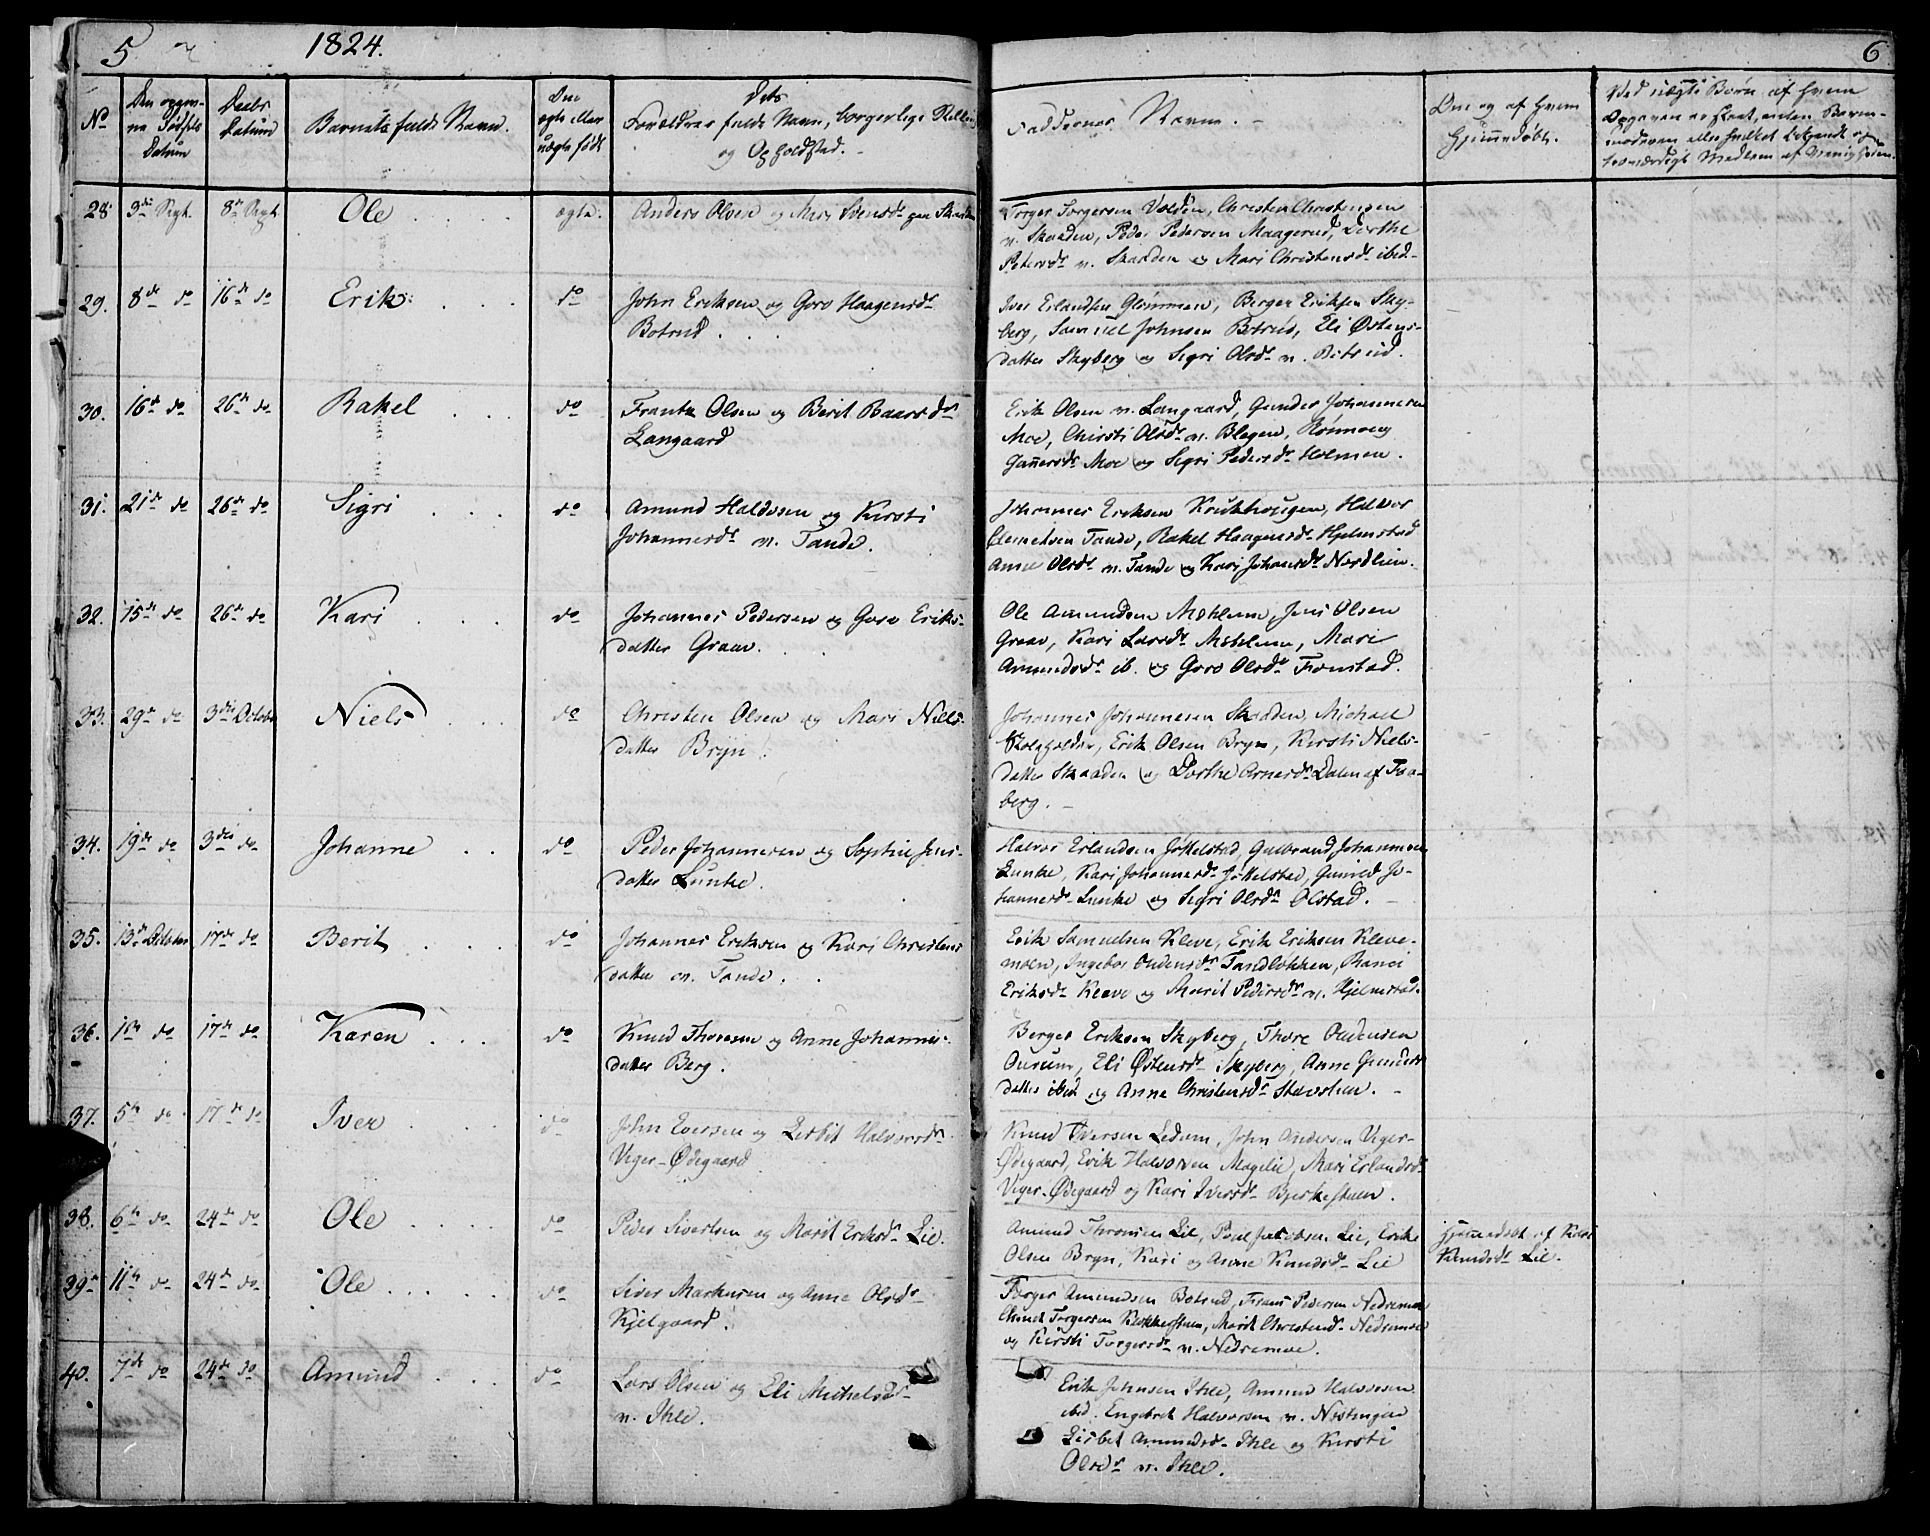 5
1824.
6
No
Den opgiv-
ne Fødsels
Datum
Daabs
Datum
Barnets fulde Navn.
Om
ægte eller
uægte født
Dets
Forældres fulde Navn, borgerlige Stilling
og Opholdsted.
Faddernes Navne.
Om og af hvem
hjemmedøbt.
Ved uægte Børn, af hvem
Opgaven er skeet, enten Barne-
moderen eller hvilket bekjendt og
troværdigt Medlem af Menigheden.
28 3die Sept. 8de Sept. Ole ægte. Anders Olsen og Mari Svensdr paa Skaaden
Torger Torgersen Volden, Christen Christensen
n. Skaaden, Peder Pedersen Maagerud, Dorthe
Petersdr n. Skaaden og Mari Christensdr ibid
29. 8de do 16de do Erik do John Eriksen og Goro Haagensdr
Botrud
Iver Erlandsen Glømmen, Berger Eriksen Sky-
berg, Samuel Johnsen Botrud, Eli Østens-
datter Skyberg og Sigri Olsdr n. Botrud.
30. 16de do 26de do Rakel do Frantz Olsen og Berit Baarsdr
Langaard
Erik Olsen n. Langaard, Gunder Johannesen
Moe, Chirsti Olsdr n. Blegen, Rønnoug
Gunersdr Moe og Sigri Pedersdr Holmen.
31. 21de do 26de do Sigri do Amund Haldosen og Kirsti
Johannesdr n. Tande.
Johannes Eriksen Krukhougen, Halvor
Clemetsen Tande, Rakel Haagensdr Hjelmstad
Anne Olsdr n. Tande og Kari Johansdr Nordlien.
32. 15de do 26de do Kari do Johannes Pedersen og Goro Eriks-
datter Graav.
Ole Amundsen Mæhlum, Jens Olsen
Graav, Kari Larsdr Mæhlum, Mari
Amundsdr ib. og Goro Olsdr Fronstad.
33. 29de do 3die October Niels do Christen Olsen og Mari Niels-
datter Bryn.
Johannes Johannesen Skaaden, Michael
Erik Olsen Bryn, Kirsti Niels-
datter Skaaden og Dorthe Arnesdr Dalen af Faa-
berg.
34. 19de do 3die do Johanne do Peder Johannesen og Sophie Jens-
datter Lunke.
Halvor Erlandsen Jøkelstad, Gulbrand Johannesen
Lunke, Kari Johannesdr Jøkelstad, Gunild Jo-
hannesdr Lunke og Sigri Olsdr Olstad.
35. 13de October 17de do Berit do Johannes Eriksen og Kari Christens
datter n. Tande.
Erik Samuelsen Kleve, Erik Eriksen Kleve-
moen, Ingebor Oudensdr Tandløkken, Ranei
Eriksdr Kleve og Marit Pedersdr n. Hjelmstad.
36. 1ste do 17de do Karen do Knud Thoresen og Anne Johannes-
datter Berg.
Berger Eriksen Skyberg, Thore Oudensen
Ourum, Eli Østensdr Skyberg, Anne Gunders
datter ibid og Anne Christensdr Stavsluen.
37. 5te do 17de do Iver do John Eversen og Lisbit Halvorsdr
Veger-Ødegaard
Knud Iversen Ledum, John Andersen Veger-
Ødegaard, Erik Halvorsen Magelie, Mari Erlandsdr
Veger-Ødegaard og Kari Iversdr Bjerkestuen.
38. 6te do 24de do Ole do Peder Sivertsen og Marit Eriksdr Lie.
Amund Thronsen Lie, Poul Jacobsen Lie, Erik
Olsen Bryn, Kari og Anne Knudsdr Lie
hjemmedøbt af Kari
Knudsdr Lie.
39 11te do 24de do Ole do Siver Markusen og Anne Olsdr
Kjelgaard.
Torger Amundsen Botrud, Frans Pedersen Nedremoe
Torgersen Klokkerstuen, Marit Christensdr Nedremoe
og Kirsti Torgersdr n. Nedremoe.
40. 7de do 24de do Amund do Lars Olsen og Eli Michelsdr
n. Ihle.
Erik Johnsen Ihle, Amund Halvorsen
ibid. Engebret Halvorsen n. Nestingen
Lisbet Amundsdr Ihle og Kirsti
Olsdr n. Ihle.